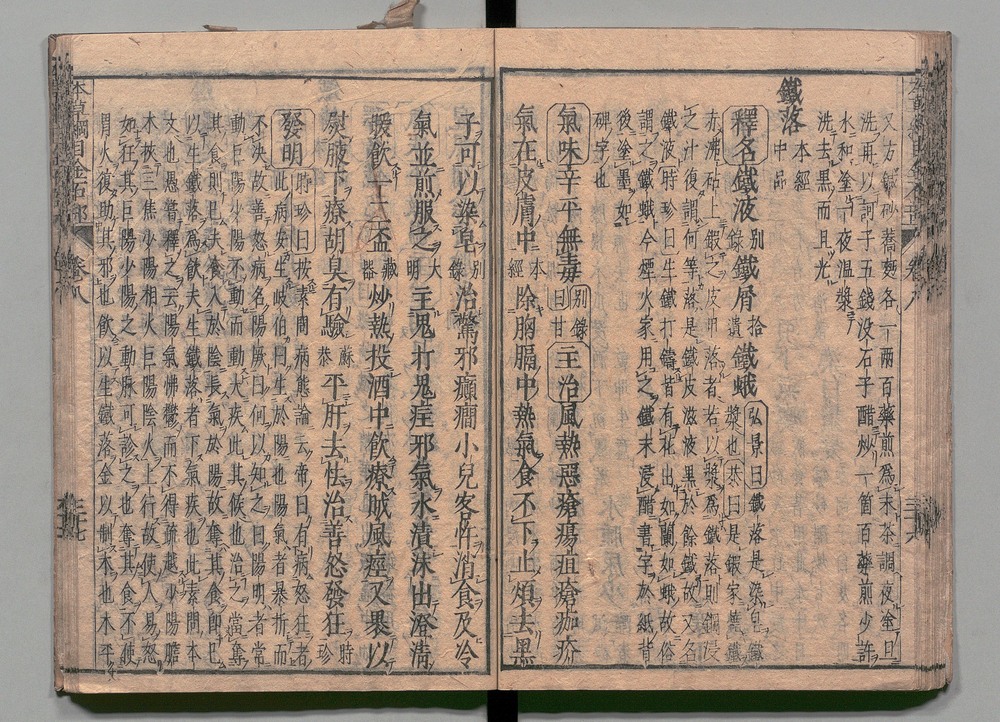 又方鍼砂蕎麵各一兩百藥煎爲末茶調夜塗旦
洗再以訶子五錢没石子醋炒一箇百藥煎少許
水和塗一夜温漿
洗去黒而且光
鐵落本經中品
釋名鐵液别録鐵屑拾遺鐵蛾弘景曰鐵落是染皂鐵
漿也恭曰是鍛家燒鐵
赤沸砧上鍛之皮甲落者若以漿爲鐵落則鋼浸
之汁復謂何等落是鐵皮滋液黒於餘鐵故又名
鐵液時珍曰生鐵打鑄皆有花出如蘭如蛾故俗
謂之鐵蛾今煙火家用之鐵末浸醋書字於紙背
後塗墨如
碑字也
氣味辛平無毒别録曰甘主治風熱惡瘡瘍疽瘡痂疥
氣在皮膚中本經除胸膈中熱氣食不下止煩去黒
子可以染皂别録治驚邪癲癇小兒客忤消食及冷
氣並煎服之大明主鬼打鬼疰邪氣水漬沫出澄清
暖飲一二盃藏器炒熱投酒中飲療賊風痙又裹以
熨腋下療胡臭有驗蘇恭平肝去怯治善怒發狂時珍
發明時珍曰按素問病態論云帝曰有病怒狂者
此病安生岐伯曰生於陽也陽氣者暴折而
不决故善怒病名陽厥曰何以知之曰陽明者常
動巨陽少陽不動而動大疾此其候也治之當奪
其食則已夫食入於陰長氣於陽故奪其食即已
以生鐵落爲飲夫生鐵落者下氣疾也此素問本
文也愚嘗釋之云陽氣怫鬱而不得疏越少陽膽
木挾三焦少陽相火巨陽陰火上行故使人易怒
如狂其巨陽少陽之動脉可診之也奪其食不使
胃火復助其邪也飲以生鐵落金以制木也木平
本草綱目金石部 卷八